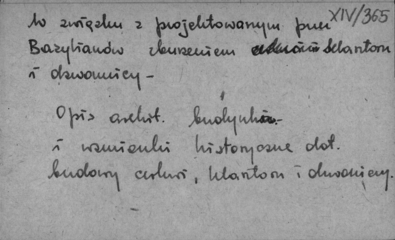 XIV/365
W związku z projektowanym przez
Bazylianów zburzeniem klasztoru
i dzwonnicy –
Opis archit. budynków
i wzmianki historyczne dot.
budowy cerkwi, klasztoru i dzwonnicy.